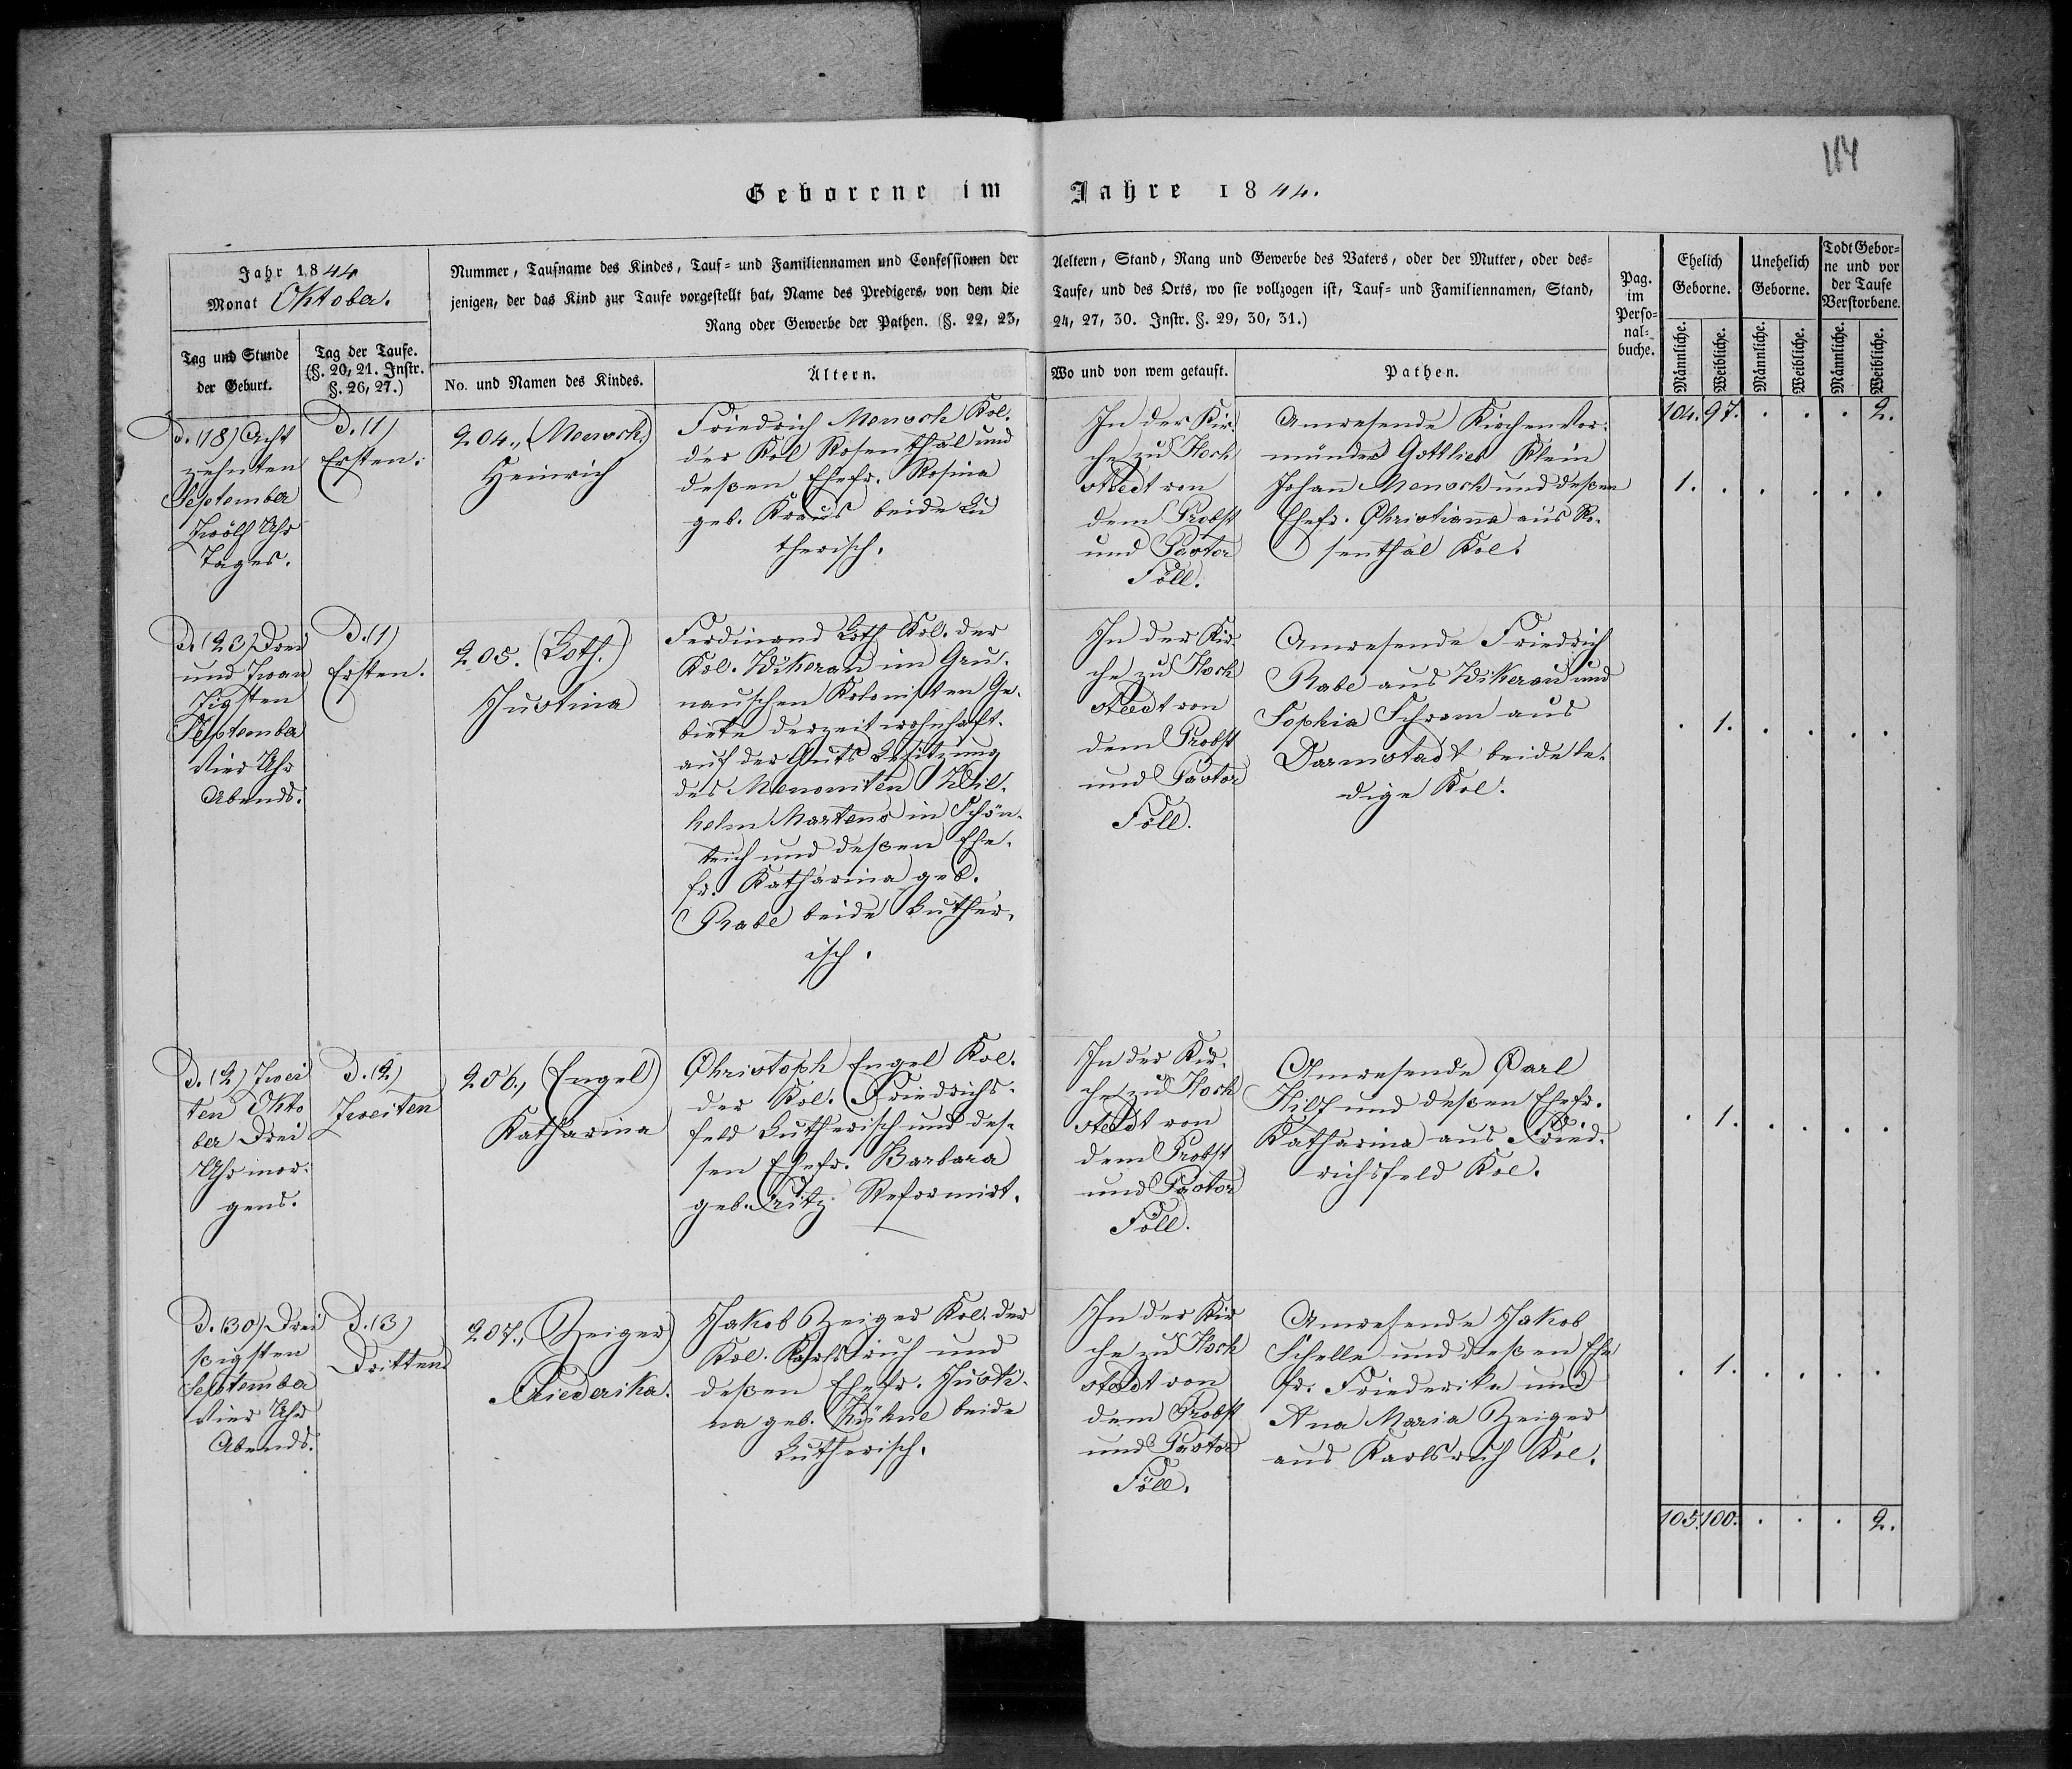 114
Geborene im Jahre 1844.
Jahr 1844
Monat Oktober.
Nummer, Taufname des Kindes, Tauf- und Familiennamen und Confessionen der Aeltern, Stand, Rang und Gewerbe des Vaters, oder der Mutter, oder des-
jenigen, der das Kind zur Taufe vorgestellt hat, Name des Predigers, von dem die Taufe, und des Orts, wo sie vollzogen ist, Tauf- und Familiennamen, Stand,
Rang oder Gewerbe der Pathen. (§. 22, 23, 24, 27, 30. Instr. §. 29, 30, 31.)
Pag.
im
Perso-
nal-
buche.
Ehelich
Geborne.
Unehelich
Geborne.
Todt Gebor-
ne und vor
der Taufe
Verstorbene.
Tag und Stunde
der Geburt.
Tag der Taufe.
(§. 20, 21. Instr.
§. 26, 27.)
No. und Namen des Kindes.
Ältern.
Wo und von wem getauft.
Pathen.
Männliche.
Weibliche.
Männliche.
Weibliche.
Männliche.
Weibliche.
104. 97. . . . 2.
D. (18) Acht
zehnten
September
Zwölf Uhr
Tages.
D. (1)
Ersten.
204., (Mensch.)
Heinrich
Friedrich Mensch Kol.
der Kol Rosenthal und
deßen Ehefr. Rosina
geb. Kraus beide Lu
therisch.
In der Kir
che zu Hoch
stedt von
dem Probst
und Pastor
Föll.
Anwesende Kirchenvor-
münder Gottlieb Klein
Johann Mensch und deßen
Ehefr. Christianna aus Ro-
senthal Kol.
1. . . . . .
D. (23) Drei
und Zwan
zigsten
September
Vier Uhr
Abends.
D. (1)
Ersten.
205. (Loth.)
Justina
Ferdinand Loth Kol. der
Kol. Wikerau im Gru-
nauschen Kolonisten Ge-
biete derzeit wohnhaft
auf der Guts Besitzung
des Menoniten Wil-
helm Martens in Schön-
teich und deßen Ehe-
fr. Katharina geb.
Rabe beide Luther-
isch.
In der Kir-
che zu Hoch
stedt von
dem Probst
und Pastor
Föll.
Anwesende Friedrich
Rabe aus Wikerau und
Sophia Schram aus
Darmstadt beide le-
dige Kol.
. 1. . . . .
D. (2) Zwei
ten Okto
ber Drei
Uhr mor-
gens.
D. (2)
Zweiten
206., (Engel)
Katharina
Christoph Engel Kol.
der Kol. Friedrichs-
feld Lutherisch und des-
sen Ehefr. Barbara
geb. Fritz Reformirt.
In der Kir-
che zu Hoch
stedt von
dem Probst
und Pastor
Föll.
Anwesende Carl
Hilz und deßen Ehefr.
Katharina aus Fried-
richsfeld Kol.
. 1. . . . .
D. (30) Drei
ßigsten
September
Vier Uhr
Abends.
D. (3)
Dritten
207., (Zeiger)
Friederika.
Jakob Zeiger Kol. der
Kol. Karlsruh und
deßen Ehefr. Justi-
na geb. Kühne beide
Lutherisch.
In der Kir
che zu Hoch
stedt von
dem Probst
und Pastor
Föll.
Anwesende Jakob
Schelle und deßen Ehe
fr. Friederika und
Ana Maria Zeiger
aus Karlsruh Kol.
. 1. . . . .
105. 100. . . . 2.